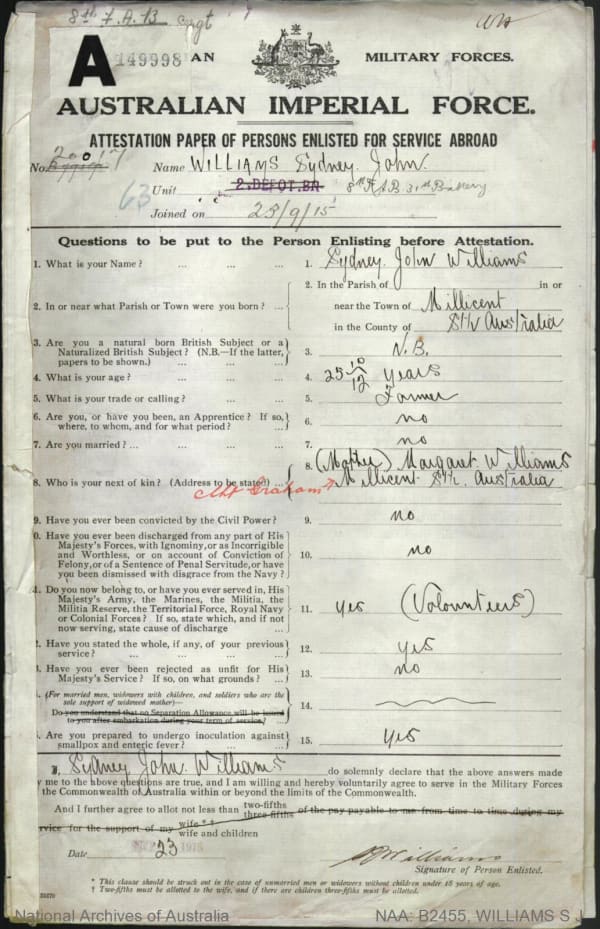 8th F.A.B
A 149998 AN MILITARY FORCES.
AUSTRALIAN IMPERIAL FORCE.
ATTESTATION PAPER OF PERSONS ENLISTED FOR SERVICE ABROAD
No. 2017 Name WILLIAMS Sydney John.
63 Unit 2. DEPOT. BN 8th F.A.B. 31st Battery
Joined on 23/9/15
Questions to be put to the Person Enlisting before Attestation.
1. What is your Name? ... ... ... 1. Sydney John Williams
2. In or near what Parish or Town were you born? ... 2. In the Parish of in or
near the Town of Millicent
in the County of Sth Australia
3. Are you a natural born British Subject or a
Naturalized British Subject? (N.B.—If the latter,
papers to be shown.) ... ... ... 3. N.B.
4. What is your age? ... ... ... 4. 25 10/12 years
5. What is your trade or calling? ... ... 5. Farmer
6. Are you, or have you been, an Apprentice? If so,
where, to whom, and for what period? ... 6. no
7. Are you married? ... ... ... 7. no
8. Who is your next of kin? (Address to be stated) ... 8. (Mother) Margaret Williams
Millicent Sth. Australia
Mt Graham
9. Have you ever been convicted by the Civil Power? 9. no
0. Have you ever been discharged from any part of His
Majesty's Forces, with Ignominy, or as Incorrigible
and Worthless, or on account of Conviction of
Felony, or of a Sentence of Penal Servitude, or have
you been dismissed with disgrace from the Navy? 10. no
1. Do you now belong to, or have you ever served in, His
Majesty's Army, the Marines, the Militia, the
Militia Reserve, the Territorial Force, Royal Navy
or Colonial Forces? If so, state which, and if not
now serving, state cause of discharge ... 11. yes (Volounteers)
2. Have you stated the whole, if any, of your previous
service? ... ... ... ... 12. yes
3. Have you ever been rejected as unfit for His
Majesty's Service? If so, on what grounds? ... 13. no
(For married men, widowers with children, and soldiers who are the
sole support of widowed mother)—
Do you understand that no Separation Allowance will be issued
to you after embarkation during your term of service? ... 14.
Are you prepared to undergo inoculation against
smallpox and enteric fever? ... ... 15. Yes
I, Sydney John Williams do solemnly declare that the above answers made
y me to the above questions are true, and I am willing and hereby voluntarily agree to serve in the Military Forces
the Commonwealth of Australia within or beyond the limits of the Commonwealth.
And I further agree to allot not less than two-fifths
three-fifths of the pay payable to me from time to time during my
rvice for the support of my wife * †
wife and children
Date 23 1915
S J Williams
Signature of Person Enlisted.
* This clause should be struck out in the case of unmarried men or widowers without children under 18 years of age.
† Two-fifths must be allotted to the wife, and if there are children three-fifths must be allotted.
National Archives of Australia NAA: B2455, WILLIAMS S J